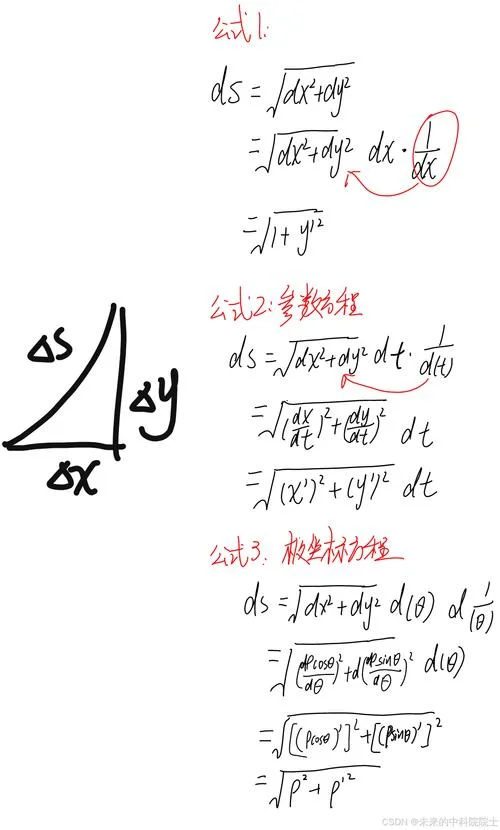 公式1:
ds = √dx²+dy²
= √dx²+dy² dx · 1/dx
= √1+y'²
公式2:参数方程
ds = √dx²+dy² dt · 1/d(t)
= √(dx/dt)²+(dy/dt)² dt
= √(x')²+(y')² dt
Δs
Δy
Δx
公式3: 极坐标方程
ds = √dx²+dy² d(θ) d 1/(θ)
= √(dρcosθ/dθ)²+d(dρsinθ/dθ)² d(θ)
= √[(ρcosθ)']²+[(ρsinθ)']²
= √ρ²+ρ'²
CSDN @未来的中科院院士